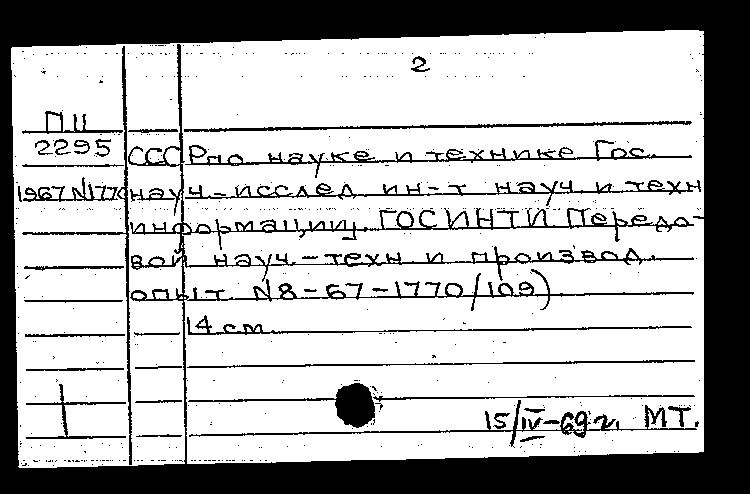 2
П11
2295
СССР по науке и технике Гос.
1967 N1770 науч-исслед ин-т науч и техн
информации. ГОСИНТИ Передо-
вой науч.-техн и производ.
опыт N8-67-1770/109)
14 см.
15/IV-69г. МТ.